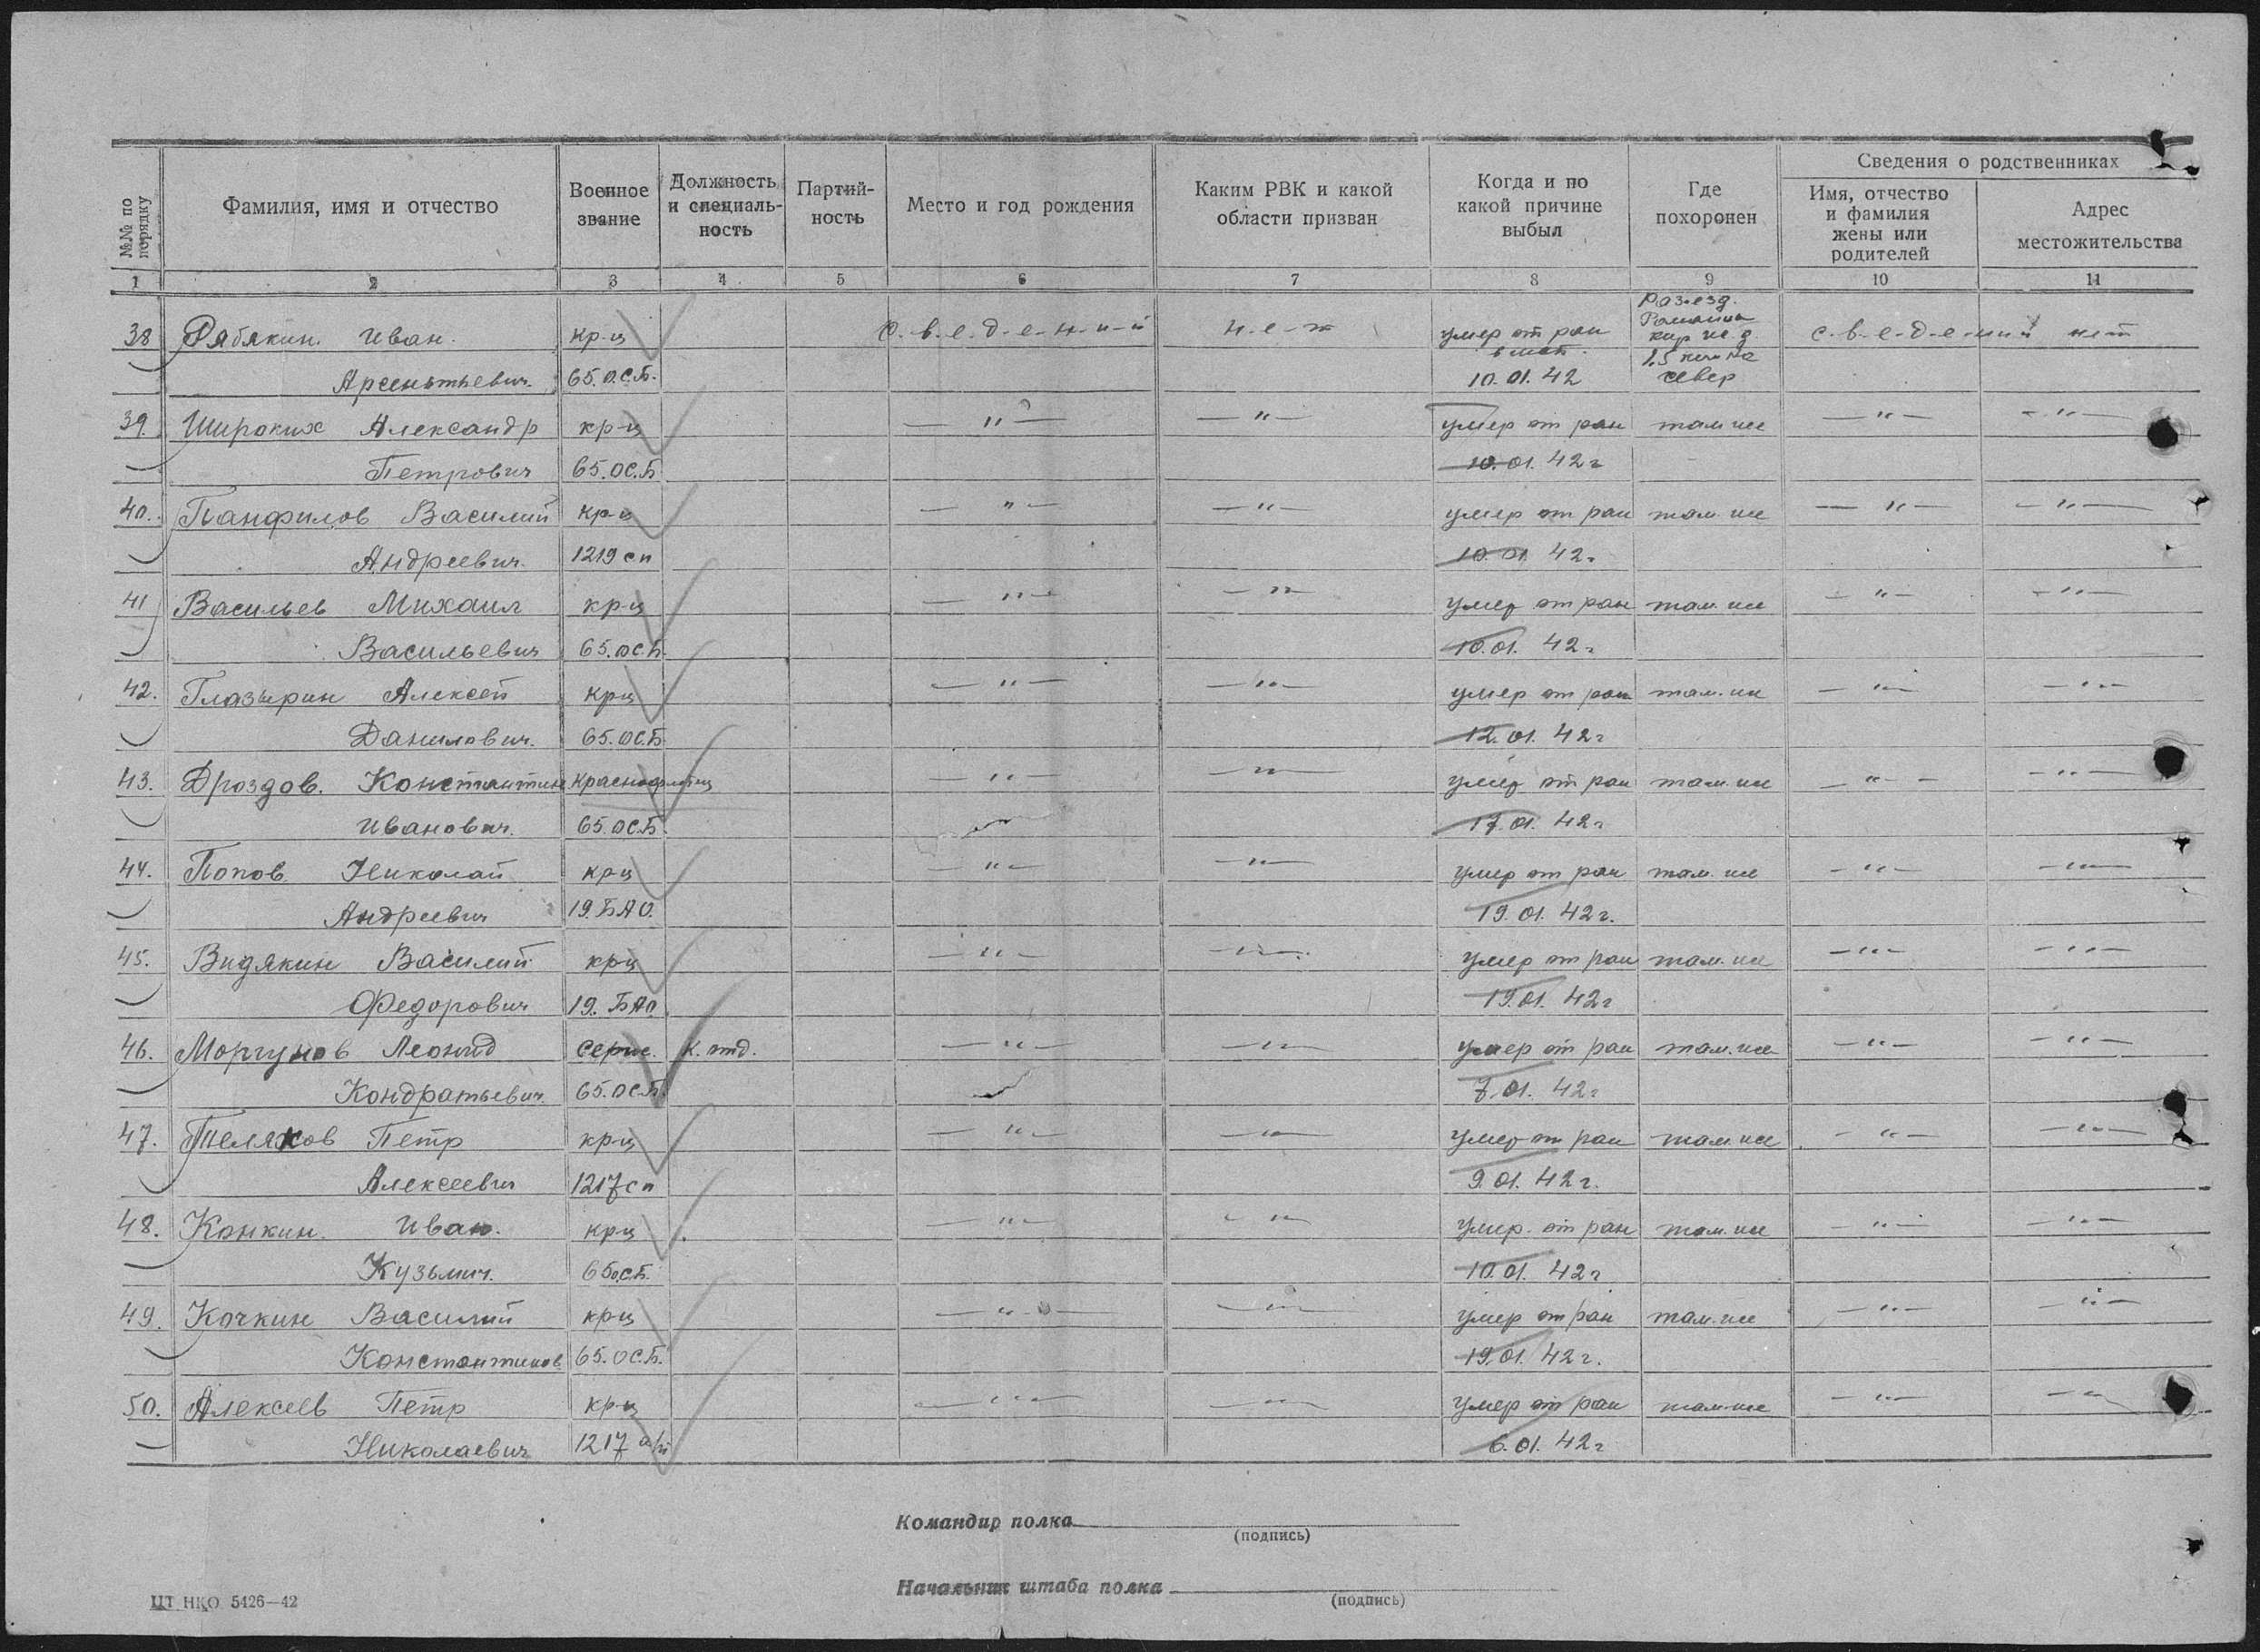 №№ по порядку
Фамилия, имя и отчество
Военное звание
Должность и специаль-ность
Партий-ность
Место и год рождения
Каким РВК и какой области призван
Когда и по какой причине выбыл
Где похоронен
Сведения о родственниках
Имя, отчество и фамилия жены или родителей
Адрес местожительства
1 2 3 4 5 6 7 8 9 10 11
38 Рябякин. Иван. кр-ц с-в-е-д-е-н-и-й н-е-т умер от ран Разъезд. с-в-е-д-е-ний нет
Арсентьевич. 65. О.С.Б. 10.01.42 1,5 км на север
39. Широких Александр кр-ц — " — — " — умер от ран там же — " — — " —
Петрович 65. ОС.Б 10.01.42г
40. Панфилов Василий кр-ц — " — — " — умер от ран там же — " — — " —
Андреевич. 1219 сп 10.01.42г
41 Васильев Михаил кр-ц — " — — " — умер от ран там же — " — — " —
Васильевич 65. ОС.Б 10.01.42г
42. Глазырин Алексей крц — " — — " — умер от ран там же — " — — " —
Данилович. 65. ОС.Б 12.01.42г
43. Дроздов. Константин краснофлотец — " — — " — умер от ран там же — " — — " —
Иванович. 65. ОС.Б. 17.01.42г
44. Попов Николай крц — " — — " — умер от ран там же — " — — " —
Андреевич 19. БАО. 19.01.42г.
45. Видякин Василий крц — " — — " — умер от ран там же — " — — " —
Федорович 19. БАО. 19.01.42г
46. Моргунов Леонид серж. к. отд. — " — — " — умер от ран там же — " — — " —
Кондратьевич. 65. ОС.Б. 7.01.42г
47. Петр крц — " — — " — умер от ран там же — " — — " —
Алексеевич 1217 сп 9.01.42г.
48. Конкин. Иван. крц — " — — " — умер от ран там же — " — — " —
Кузьмич. 65 ос.Б. 10.01.42г
49. Кочкин Василий крц — " — — " — умер от ран там же — " — — " —
Константинов 65. ОС.Б. 19.01.42г.
50. Алексеев Петр кр-ц — " — — " — умер от ран там же — " — — " —
Николаевич 1217 6.01.42г
Командир полка
(подпись)
Начальник штаба полка
(подпись)
ЦТ НКО 5426—42